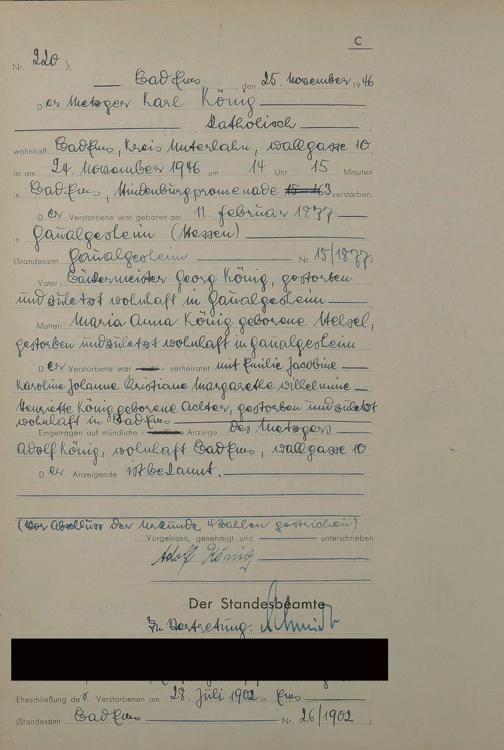 C
Nr. 220
Bad Ems, den 25. November 1946
Der Metzger Karl König
Katholisch
wohnhaft Bad Ems, Kreis Unterlahn, Wallgasse 10
ist am 24. November 1946 um 14 Uhr 15 Minuten
in Bad Ems, Hindenburgpromenade 3 verstorben.
Der Verstorbene war geboren am 11. Februar 1877
in Gaualgesheim (Hessen)
(Standesamt Gaualgesheim Nr. 15/1877)
Vater: Gärtnermeister Georg König, gestorben
und zuletzt wohnhaft in Gaualgesheim
Mutter: Maria Anna König geborene Hessel,
gestorben und zuletzt wohnhaft in Gaualgesheim
Der Verstorbene war verheiratet mit Emilie Jacobine
Karoline Johanne Christiane Margarethe Wilhelmine
Henriette König geborene Achter, gestorben und zuletzt
wohnhaft in Bad Ems
Eingetragen auf mündliche Anzeige des Metzgers
Adolf König, wohnhaft Bad Ems, Wallgasse 10
Der Anzeigende ist bekannt.
(Vor Abschluss der Urkunde, 4 Zahlen gestrichen)
Vorgelesen, genehmigt und unterschrieben
Adolf König
Der Standesbeamte
In Vertretung: Schmidt
Eheschließung des Verstorbenen am 28. Juli 1902 in Ems
(Standesamt Bad Ems Nr. 26/1902)